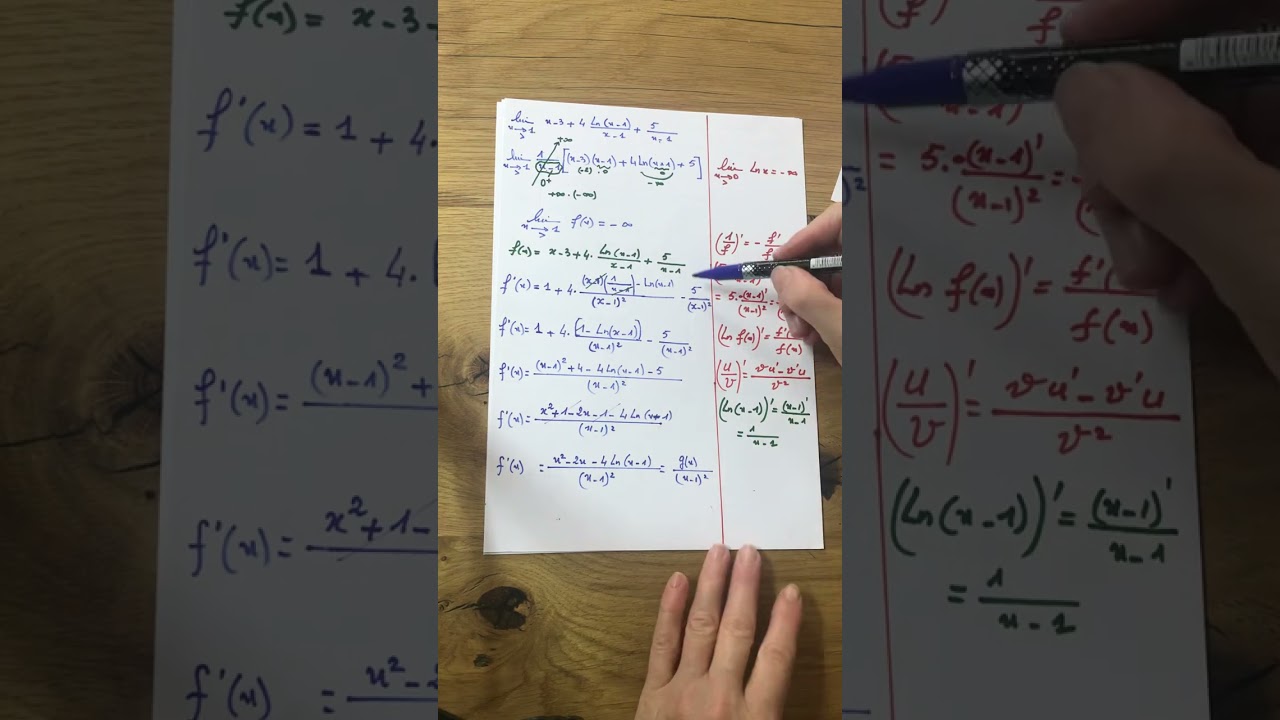 lim x→1 > x-3+4 Ln(x-1)/(x-1) + 5/(x-1)
lim x→1 > 1/(x-1) [(x-3)(x-1)+4Ln(x-1)+5]
+∞
0⁺
(-2) · 0
0
-∞
+∞·(-∞)
lim x→1 > f(x) = -∞
f(x) = x-3+4. Ln(x-1)/(x-1) + 5/(x-1)
f'(x) = 1 + 4. ((x-1)(1/(x-1)) - Ln(x-1))/(x-1)² - 5/(x-1)²
f'(x) = 1 + 4. [1-Ln(x-1)]/(x-1)² - 5/(x-1)²
f'(x) = ((x-1)²+4-4Ln(x-1)-5)/(x-1)²
f'(x) = (x²+1-2x-1-4Ln(x-1))/(x-1)²
f'(x) = (x²-2x-4Ln(x-1))/(x-1)² = g(x)/(x-1)²
lim x→0 > Ln x = -∞
(1/f)' = - f'
= 5.-(x-1)'/(x-1)² =
(Ln f(x))' = f'(x)/f(x)
(u/v)' = (vu'-v'u)/v²
(Ln(x-1))' = (x-1)'/(x-1)
= 1/(x-1)